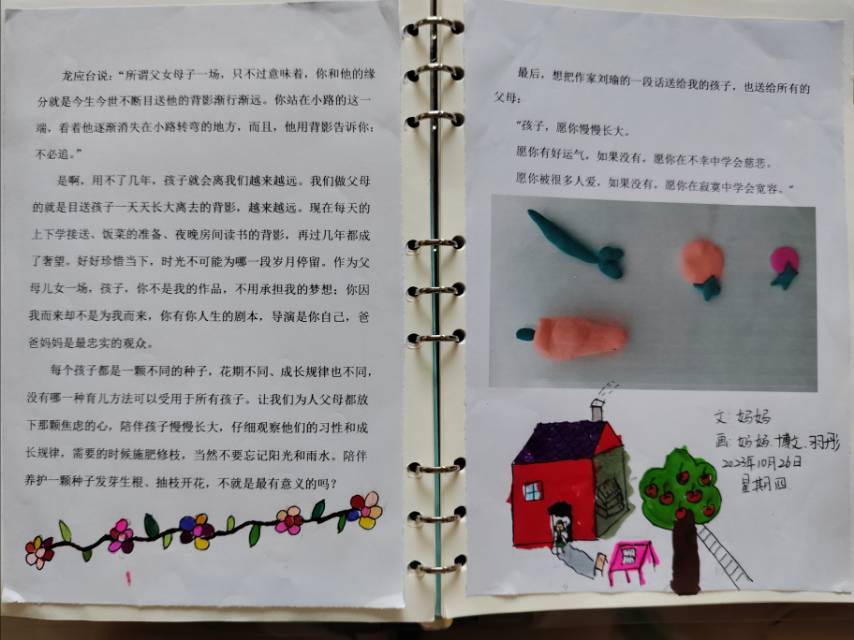 龙应台说：“所谓父女母子一场，只不过意味着，你和他的缘
分就是今生今世不断目送他的背影渐行渐远。你站在小路的这一
端，看着他逐渐消失在小路转弯的地方，而且，他用背影告诉你：
不必追。”
是啊，用不了几年，孩子就会离我们越来越远。我们做父母
的就是目送孩子一天天长大离去的背影，越来越远。现在每天的
上下学接送、饭菜的准备、夜晚房间读书的背影，再过几年都成
了奢望。好好珍惜当下，时光不可能为哪一段岁月停留。作为父
母儿女一场，孩子，你不是我的作品，不用承担我的梦想；你因
我而来却不是为我而来，你有你人生的剧本，导演是你自己，爸
爸妈妈是最忠实的观众。
每个孩子都是一颗不同的种子，花期不同、成长规律也不同，
没有哪一种育儿方法可以受用于所有孩子。让我们为人父母都放
下那颗焦虑的心，陪伴孩子慢慢长大，仔细观察他们的习性和成
长规律，需要的时候施肥修枝，当然不要忘记阳光和雨水。陪伴
养护一颗种子发芽生根、抽枝开花，不就是最有意义的吗？
最后，想把作家刘瑜的一段话送给我的孩子，也送给所有的
父母：
“孩子，愿你慢慢长大。
愿你有好运气，如果没有，愿你在不幸中学会慈悲。
愿你被很多人爱，如果没有，愿你在寂寞中学会宽容。”
文：妈妈
画：妈妈、博文、羽彤
2023年10月26日
星期四